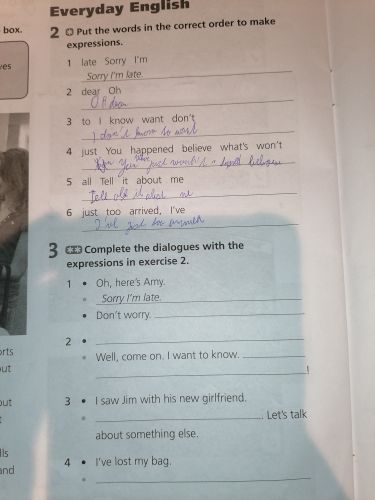 Everyday English
box.
2 Put the words in the correct order to make
expressions.
ves
1 late Sorry I'm
Sorry I'm late.
2 dear Oh
Oh dear
3 to I know want don't
I don't know to want
4 just You happened believe what's won't
You just
5 all Tell it about me
Tell all it about me
6 just too arrived, I've
I've just too
3 Complete the dialogues with the
expressions in exercise 2.
1 • Oh, here's Amy.
• Sorry I'm late.
• Don't worry.
2 •
• Well, come on. I want to know.
!
orts
out
3 • I saw Jim with his new girlfriend.
• . Let's talk
out
about something else.
lls
4 • I've lost my bag.
and
•